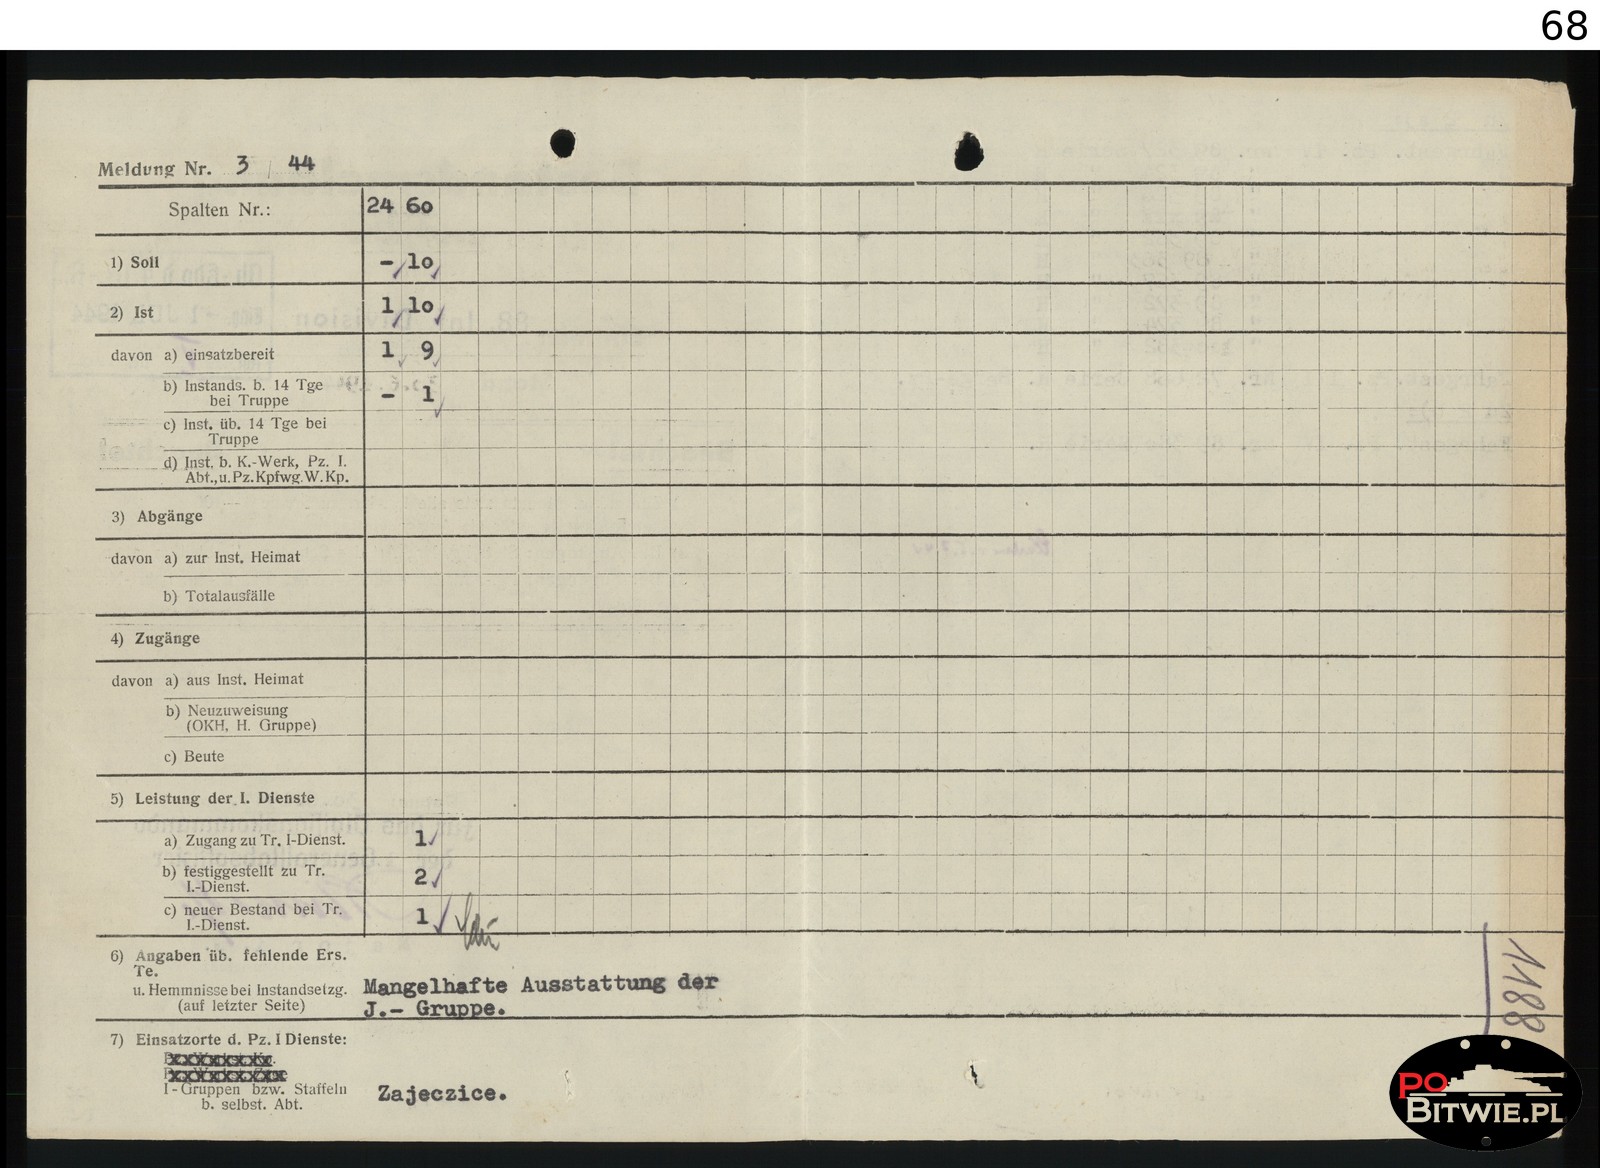 68
Meldung Nr. 3 / 44
Spalten Nr.: 24 60
1) Soll - 10
2) Ist 1 10
davon a) einsatzbereit 1 9
b) Instands. b. 14 Tge
bei Truppe - 1
c) Inst. üb. 14 Tge bei
Truppe
d) Inst. b. K.-Werk, Pz. I.
Abt., u. Pz. Kpfwg. W. Kp.
3) Abgänge
davon a) zur Inst. Heimat
b) Totalausfälle
4) Zugänge
davon a) aus Inst. Heimat
b) Neuzuweisung
(OKH, H. Gruppe)
c) Beute
5) Leistung der I. Dienste
a) Zugang zu Tr. I-Dienst. 1
b) festiggestellt zu Tr.
I.-Dienst. 2
c) neuer Bestand bei Tr.
I.-Dienst. 1
6) Angaben üb. fehlende Ers.
Te.
u. Hemmnisse bei Instandsetzg.
(auf letzter Seite)
Mangelhafte Ausstattung der
J.- Gruppe.
7) Einsatzorte d. Pz. I Dienste:
I-Gruppen bzw. Staffeln
b. selbst. Abt.
Zajeczice.
1188
PO
BITWIE.PL